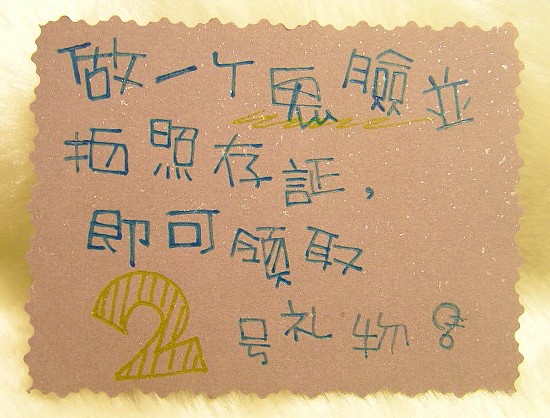 做一个鬼臉並
拍照存証，
即可領取
2号礼物！